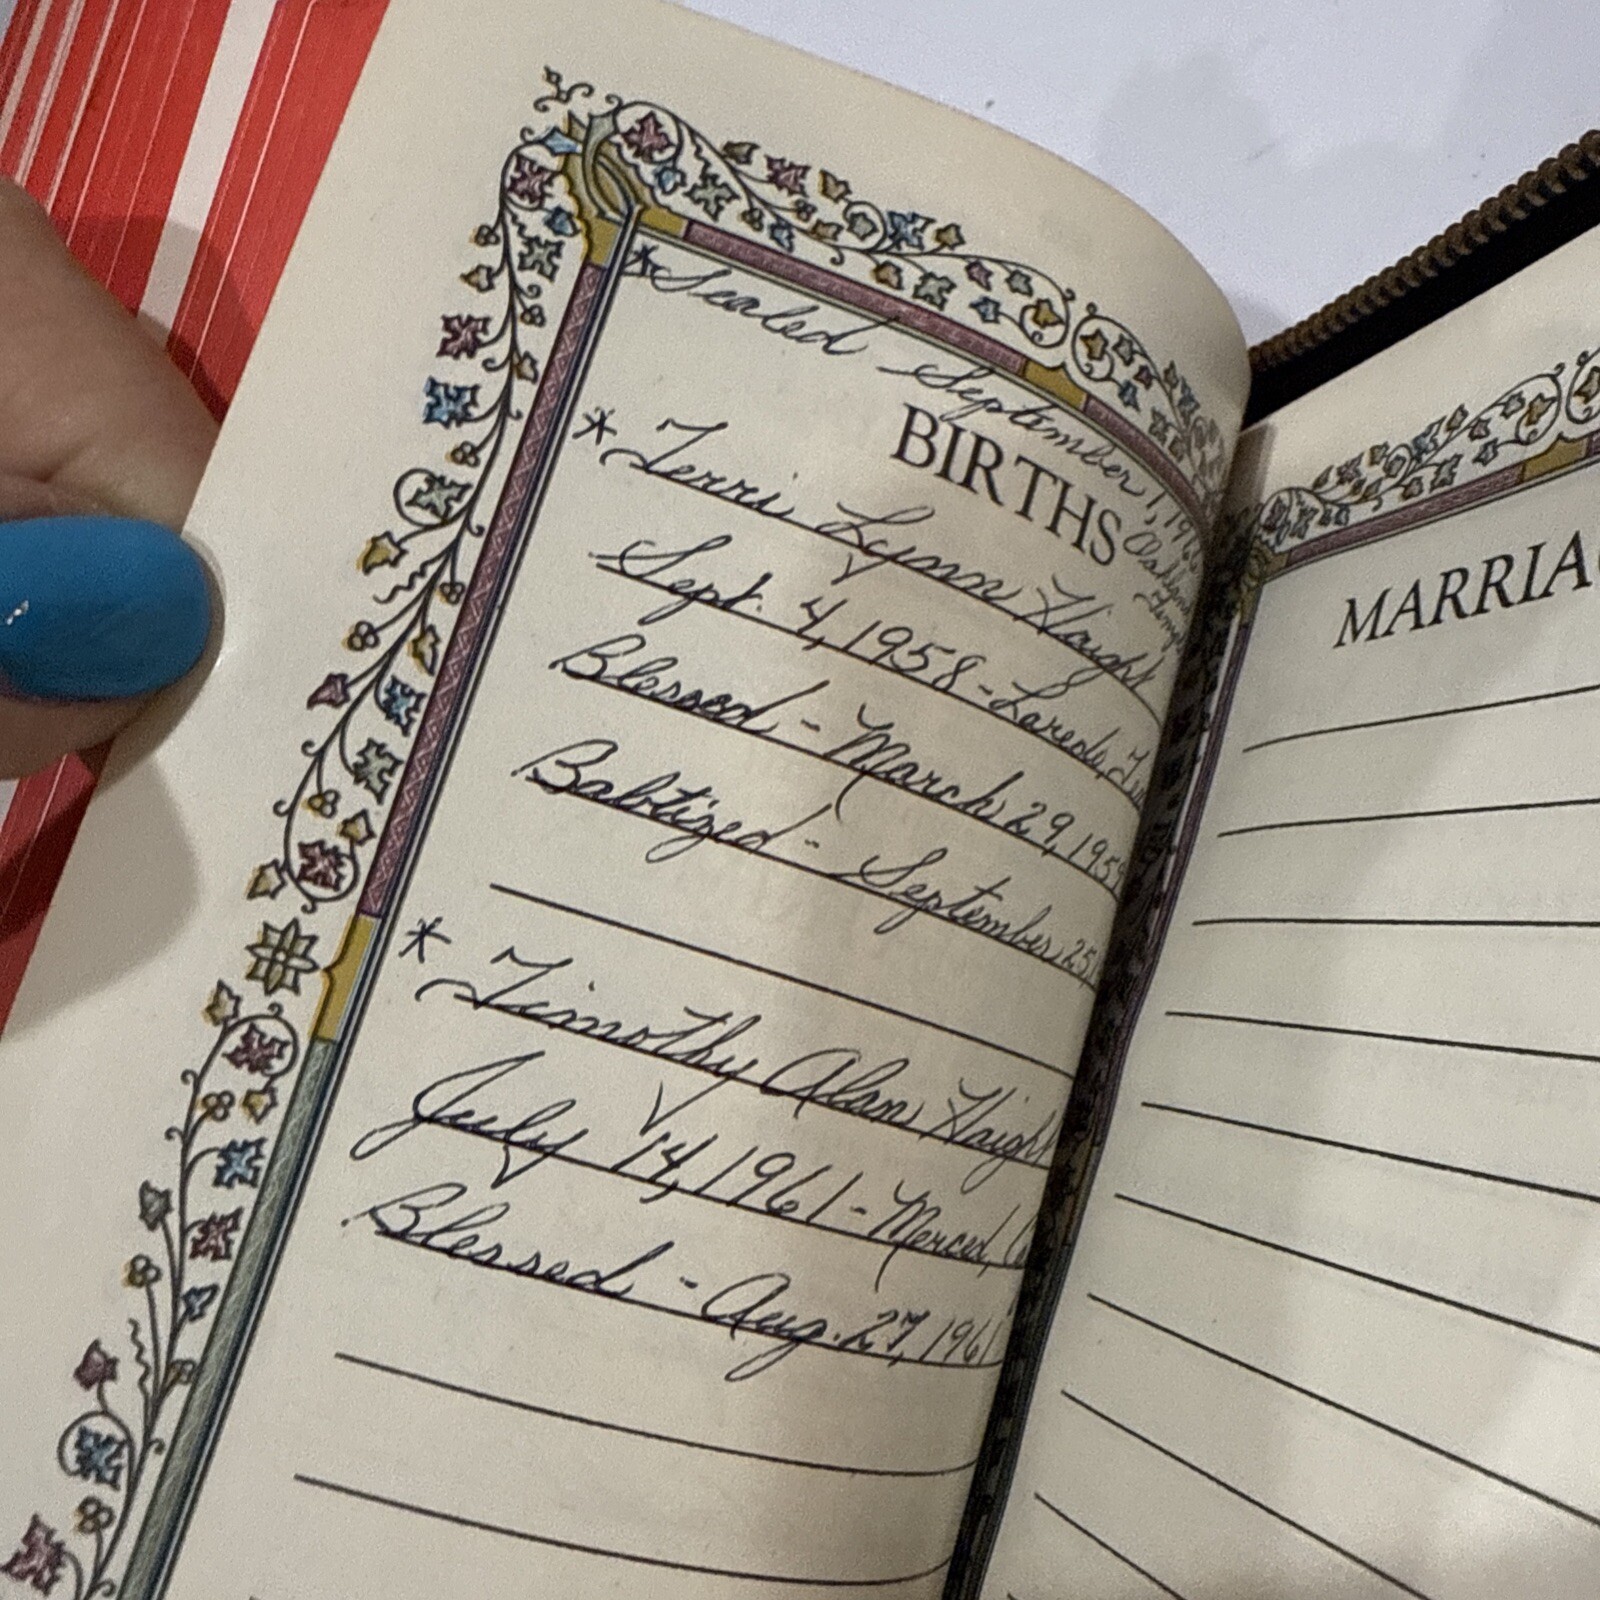 *Sealed September 1, 196
Oakland
Temple
BIRTHS
* Terri Lynn Haight
Sept. 4, 1958 - Laredo, Tex
Blessed - March 29, 1959
Babtized - September 25,
* Timothy Alan Haight
July 14, 1961 - Merced, Ca
Blessed - Aug. 27, 1961
MARRIAG